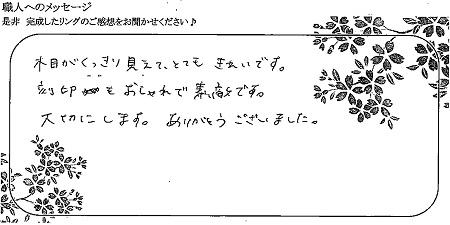 職人へのメッセージ
是非 完成したリングのご感想をお聞かせください♪
木目がくっきり見えて、とても きれいです。
刻印も おしゃれで 素敵です。
大切にします。 ありがとう ございました。